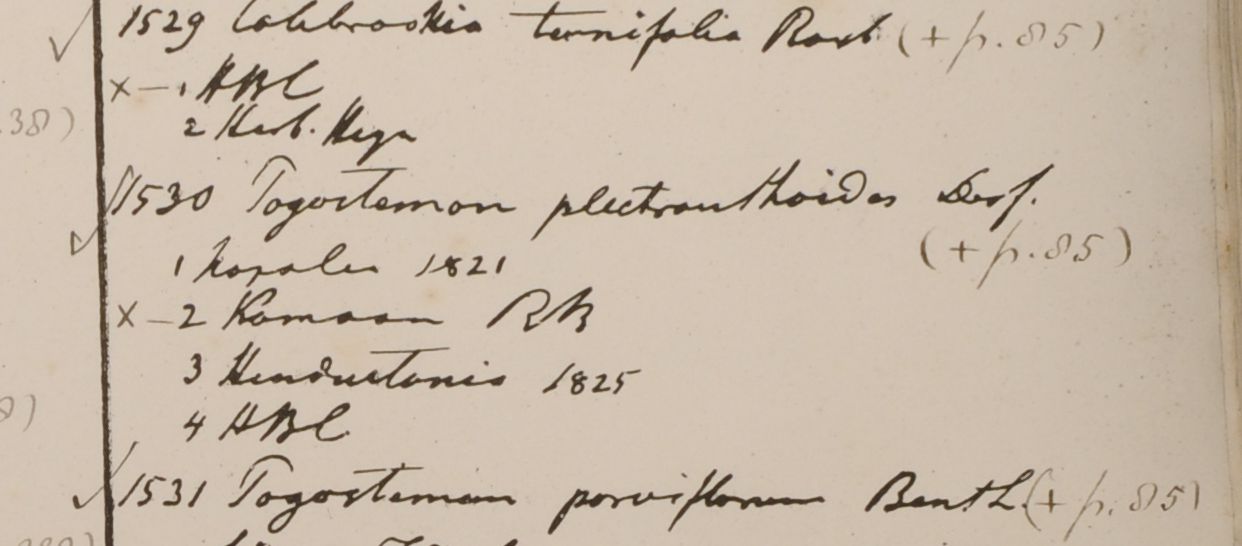 1529 Colebrookia ternifolia Roxb (+ p. 85)
x – 1 HBC
2 Herb. Heyn
38)
1530 Pogostemon plectranthoides Desf.
(+ p. 85)
1 Napalia 1821
x – 2 Kamaon RB
3 Hindustania 1825
4 HBC
1531 Pogostemon parviflorum Benth. (+ p. 85)